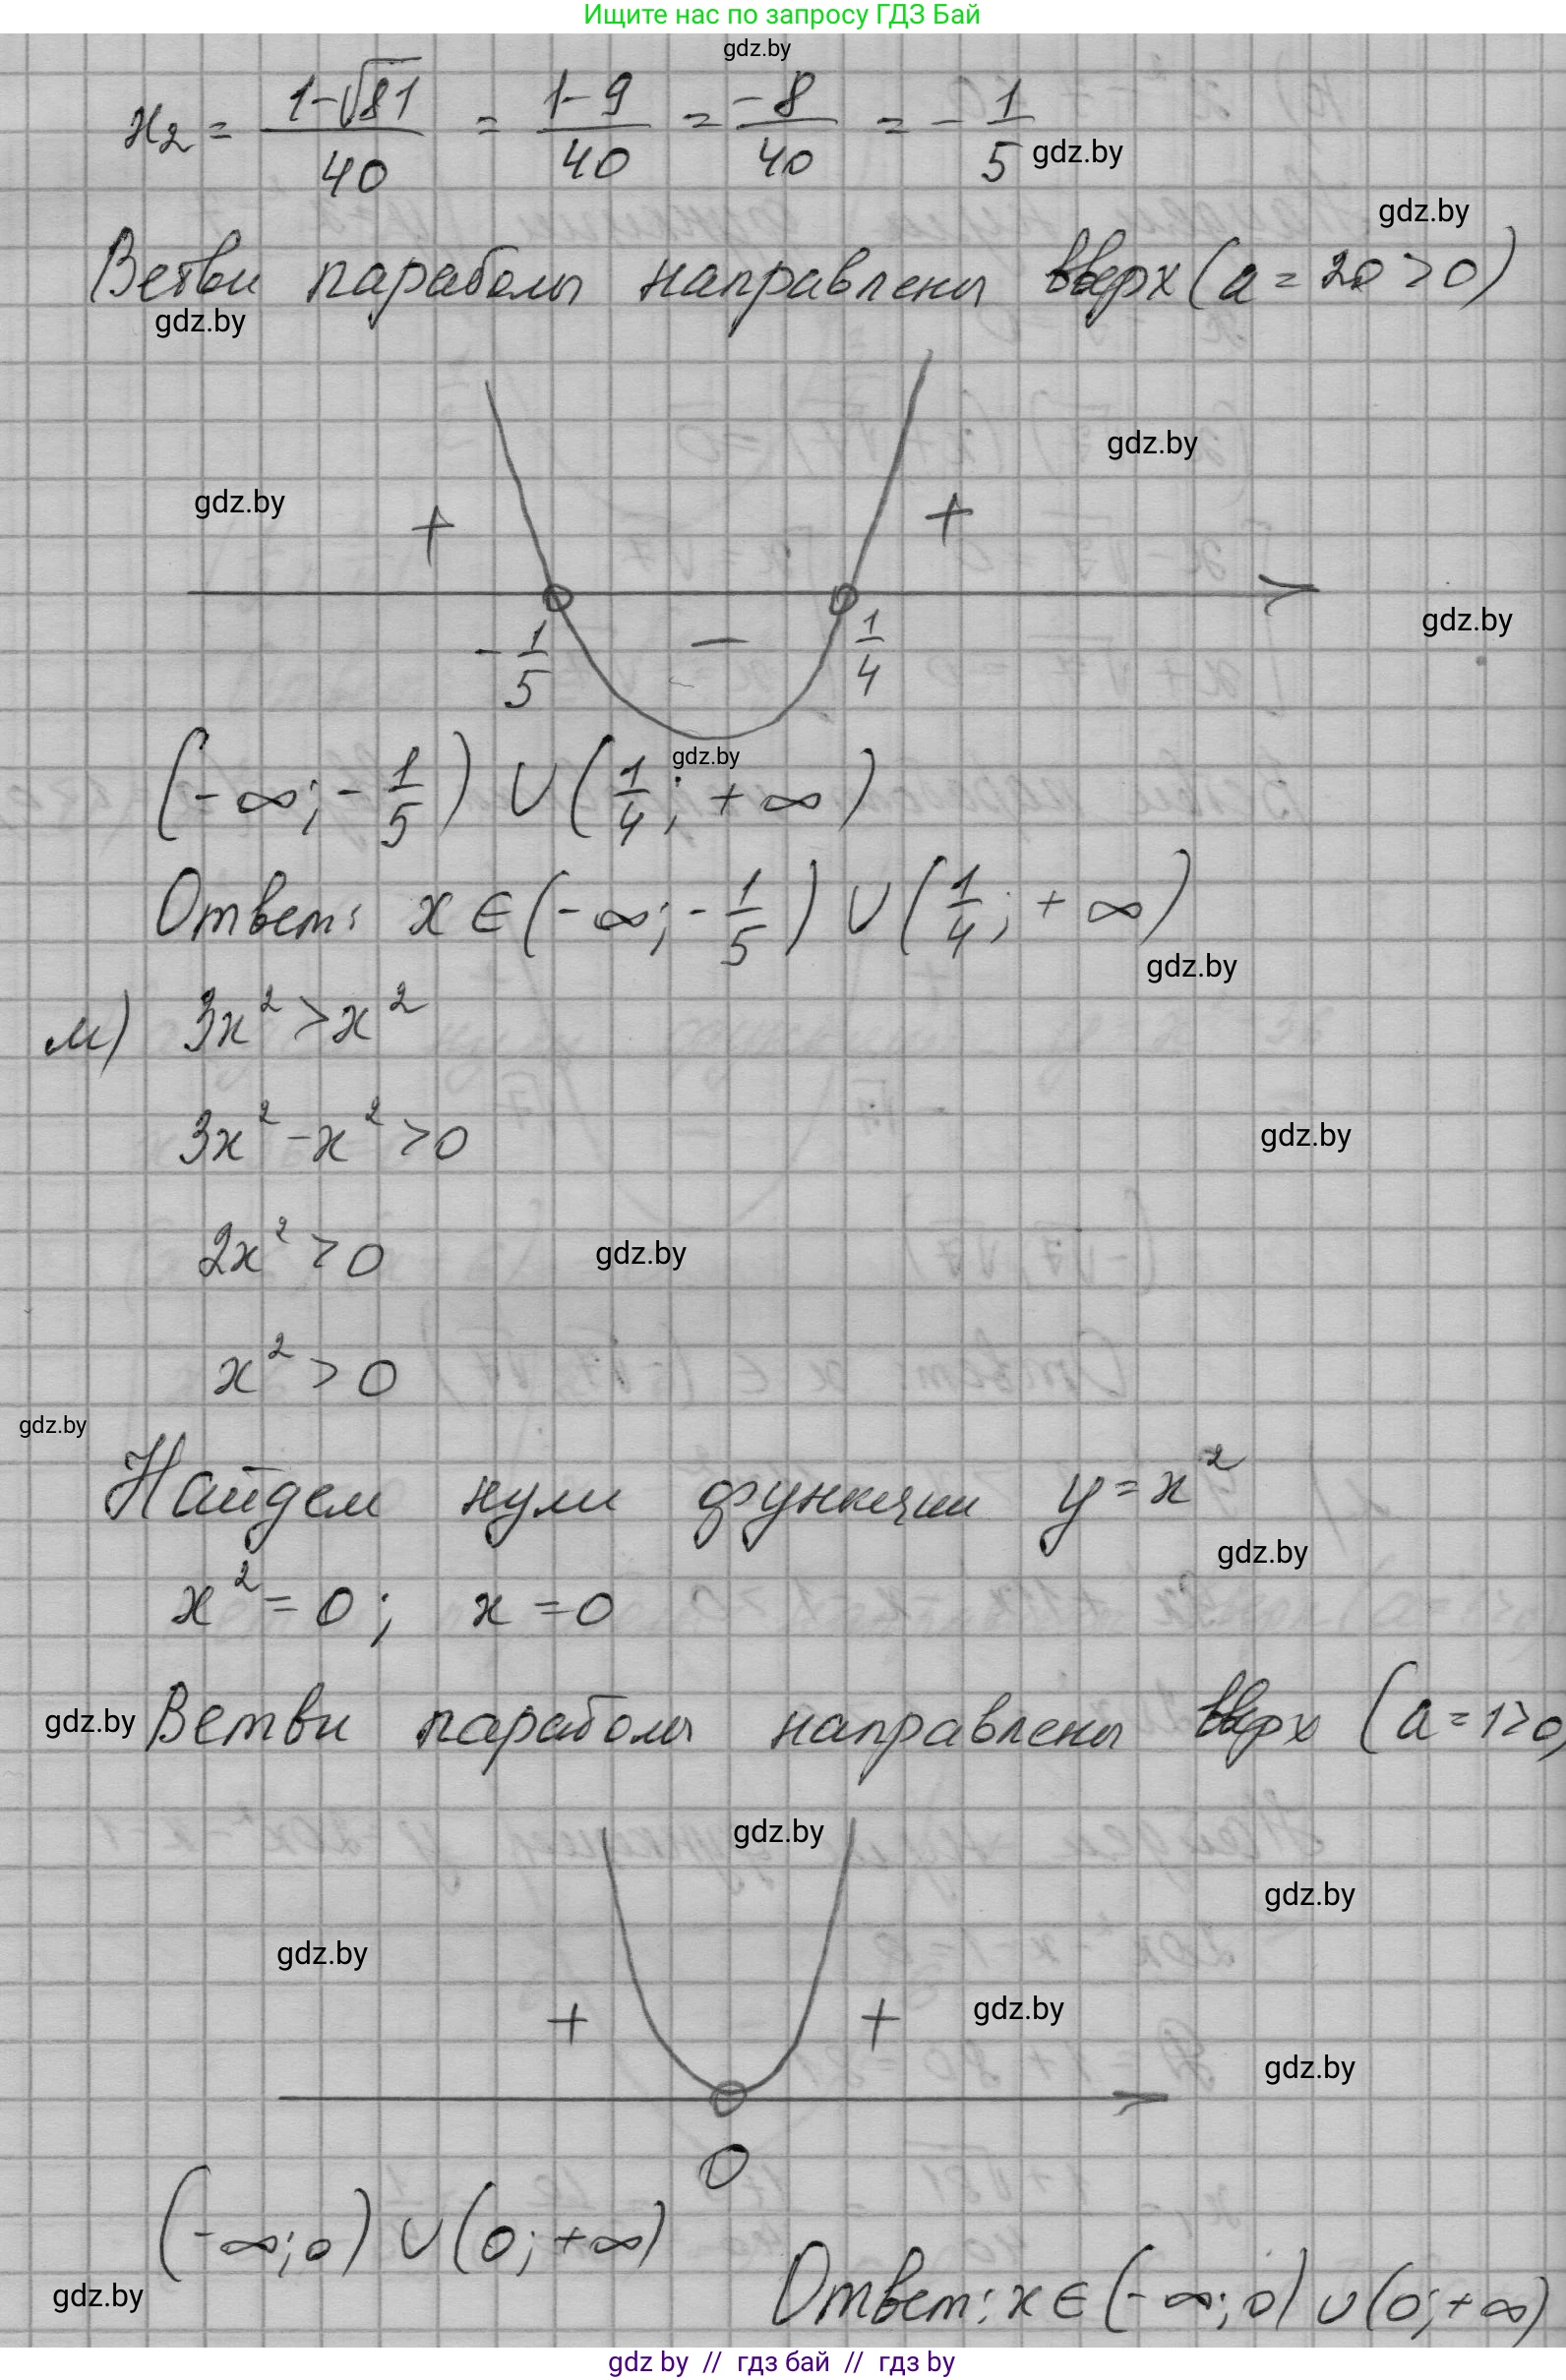 Ищите нас по запросу ГДЗ Бай
gdz.by
x₂ = (1-√81)/40 = (1-9)/40 = -8/40 = -1/5
gdz.by
gdz.by
Ветви параболы направлены вверх (a = 20 > 0)
gdz.by
gdz.by
gdz.by
+ +
gdz.by
-1/5 − 1/4
gdz.by
(-∞; -1/5) ∪ (1/4; +∞)
Ответ: x ∈ (-∞; -1/5) ∪ (1/4; +∞)
gdz.by
м) 3x² > x²
3x² - x² > 0
gdz.by
2x² > 0
gdz.by
x² > 0
gdz.by
Найдем нули функции y = x²
gdz.by
x² = 0; x = 0
gdz.by
Ветви параболы направлены вверх (a = 1 > 0)
gdz.by
gdz.by
gdz.by
+ +
gdz.by
gdz.by
0
(-∞; 0) ∪ (0; +∞)
gdz.by
Ответ: x ∈ (-∞; 0) ∪ (0; +∞)
gdz by // гдз бай // гдз by